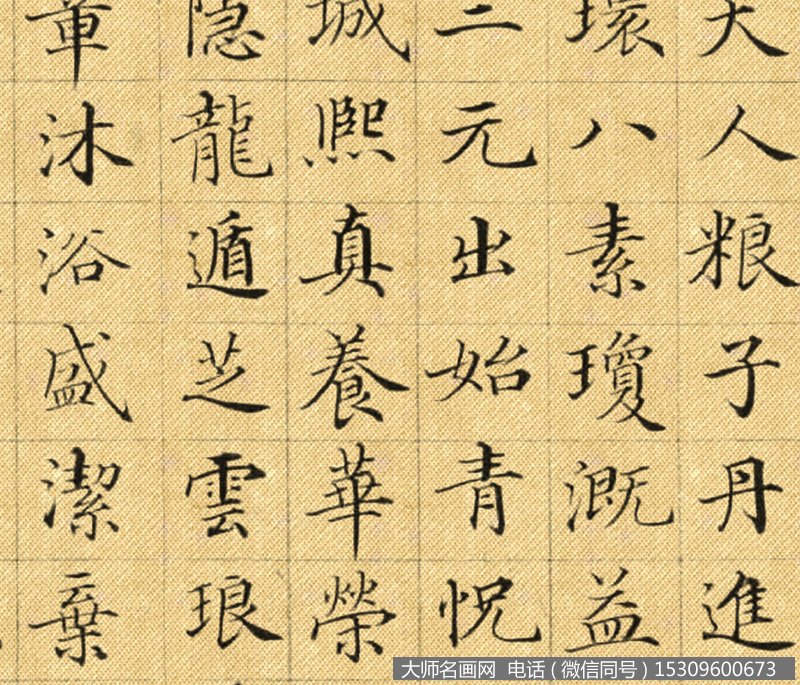 人粮子丹進
環八素瓊溉益
元出始青怳
城熙真養華榮
隐龍遁芝雲琅
沐浴盛潔棄
大师名画网 电话（微信同号）15309600673